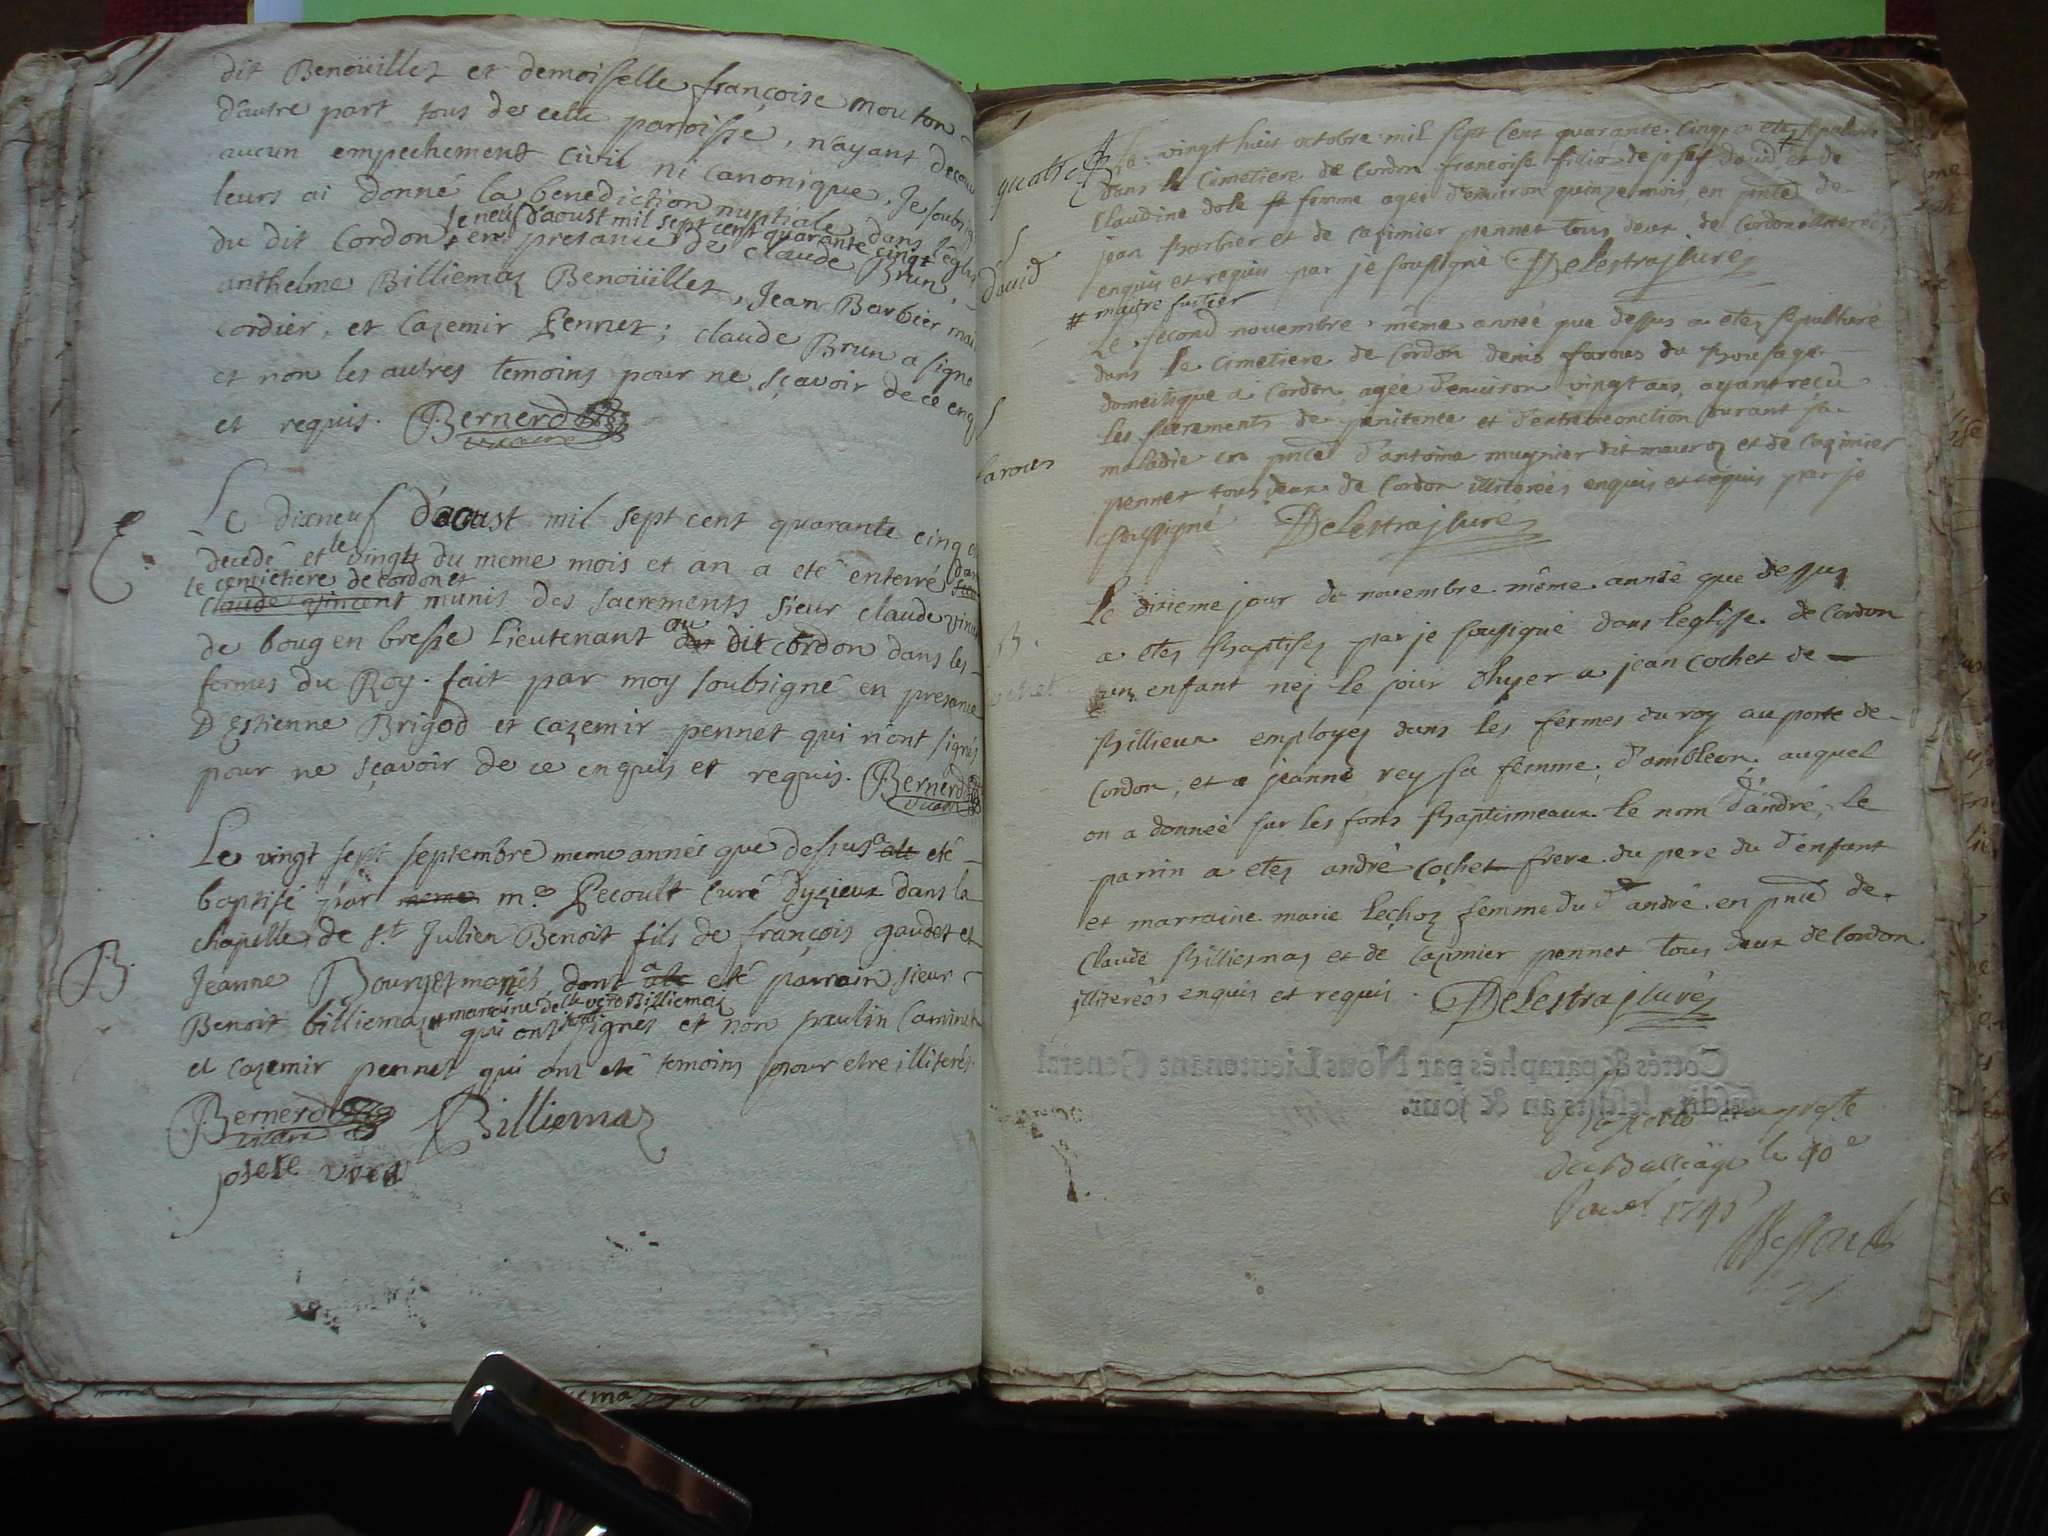 dit Benoüillet et demoiselle françoise mouton
d'autre part tous de cette paroisse, n'ayant decou
aucun empechement civil ni canonique, Je soubsig
leurs ai donné la benediction nuptiale dans l'eglise
le neuf d'aoust mil sept cent quarante cinq
du dit Cordon en presance de Claude Brun,
anthelme Billiemaz Benoüillet, Jean Barbier mai
cordier, et Cazemir Pennet; claude Brun a signé
et non les autres temoins pour ne sçavoir de ce enq
et requis. Bernerd
vicaire
E.
Le dixneuf d'aoust mil sept cent quarante cinq e
decedé et le vingt du meme mois et an a eté enterré dans
le cemietiere de cordon et
claude vincent munis des sacrements sieur claude vincen
de boug en bresse Lieutenant au dit cordon dans les
fermes du Roy. fait par moy soubsigné en presance
D'Estienne Brigod et cazemir pennet qui n'ont signés
pour ne sçavoir de ce enquis et requis. Bernerd
vicaire
Le vingt sept septembre meme année que dessus a eté
baptisé par m.e Pecoult curé dyzieux dans la
chapelle de s.t Julien Benoit fils de françois gaudet et
B.
Jeanne Bourjet mariés, dont a eté parrain sieur
Benoit billiemaz # marraine de la vete Billiemaz
qui ont signés et non paulin Caminet
et cazemir pennet qui ont eté temoins pour etre illiterés.
Bernerd Billiemaz
vicaire
quatre
Le vingt huit octobre mil sept cent quarante cinq a etez sepulturé
dans le cimetiere de Cordon francoise fillie de josef david et de
Claudine dole sa femme agée d'environ quinze mois en pnce de
jean barbier # et de cazimier pennet tous deux de Cordon illiterés
david
enquis et requis par je soussigné Delestraz Curez
# maitre
Le second novembre même année que dessus a etez sepulturé
dans le cimetiere de Cordon denis farous du bousage
domestique a Cordon agée d'environ vingt ans, ayant reçu
les sacrements de penitence et d'extreme onction durant sa
farous
maladie en pnce d'antoine mugnier dit mauroz et de cazimier
pennet tous deux de Cordon illiterés enquis et requis par je
soussigné Delestraz Curé
Le dixieme jour de novembre même année que dessus
B.
a etez baptisez par je soussigné dans leglise de Cordon
cochet
un enfant nez le jour d'hyer a jean cochet de
billieux employez dans les fermes du roy au porte de
Cordon, et a jeanne rey sa femme, d'ambleon, auquel
on a donneé sur les fons baptismeaux le nom d'andré, le
parrin a etez andré cochet frere du pere du d'enfant
et marraine marie Lechoz femme du d andré en pnce de
Claude billiemaz et de cazimier pennet tous deux de Cordon
illiterés enquis et requis. Delestraz Curéz
Cottés & paraphés par Nous Lieutenant General
lesdits an & jour.
1746